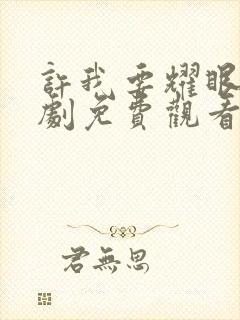 許我要耀眼
劇免費觀看
君無思